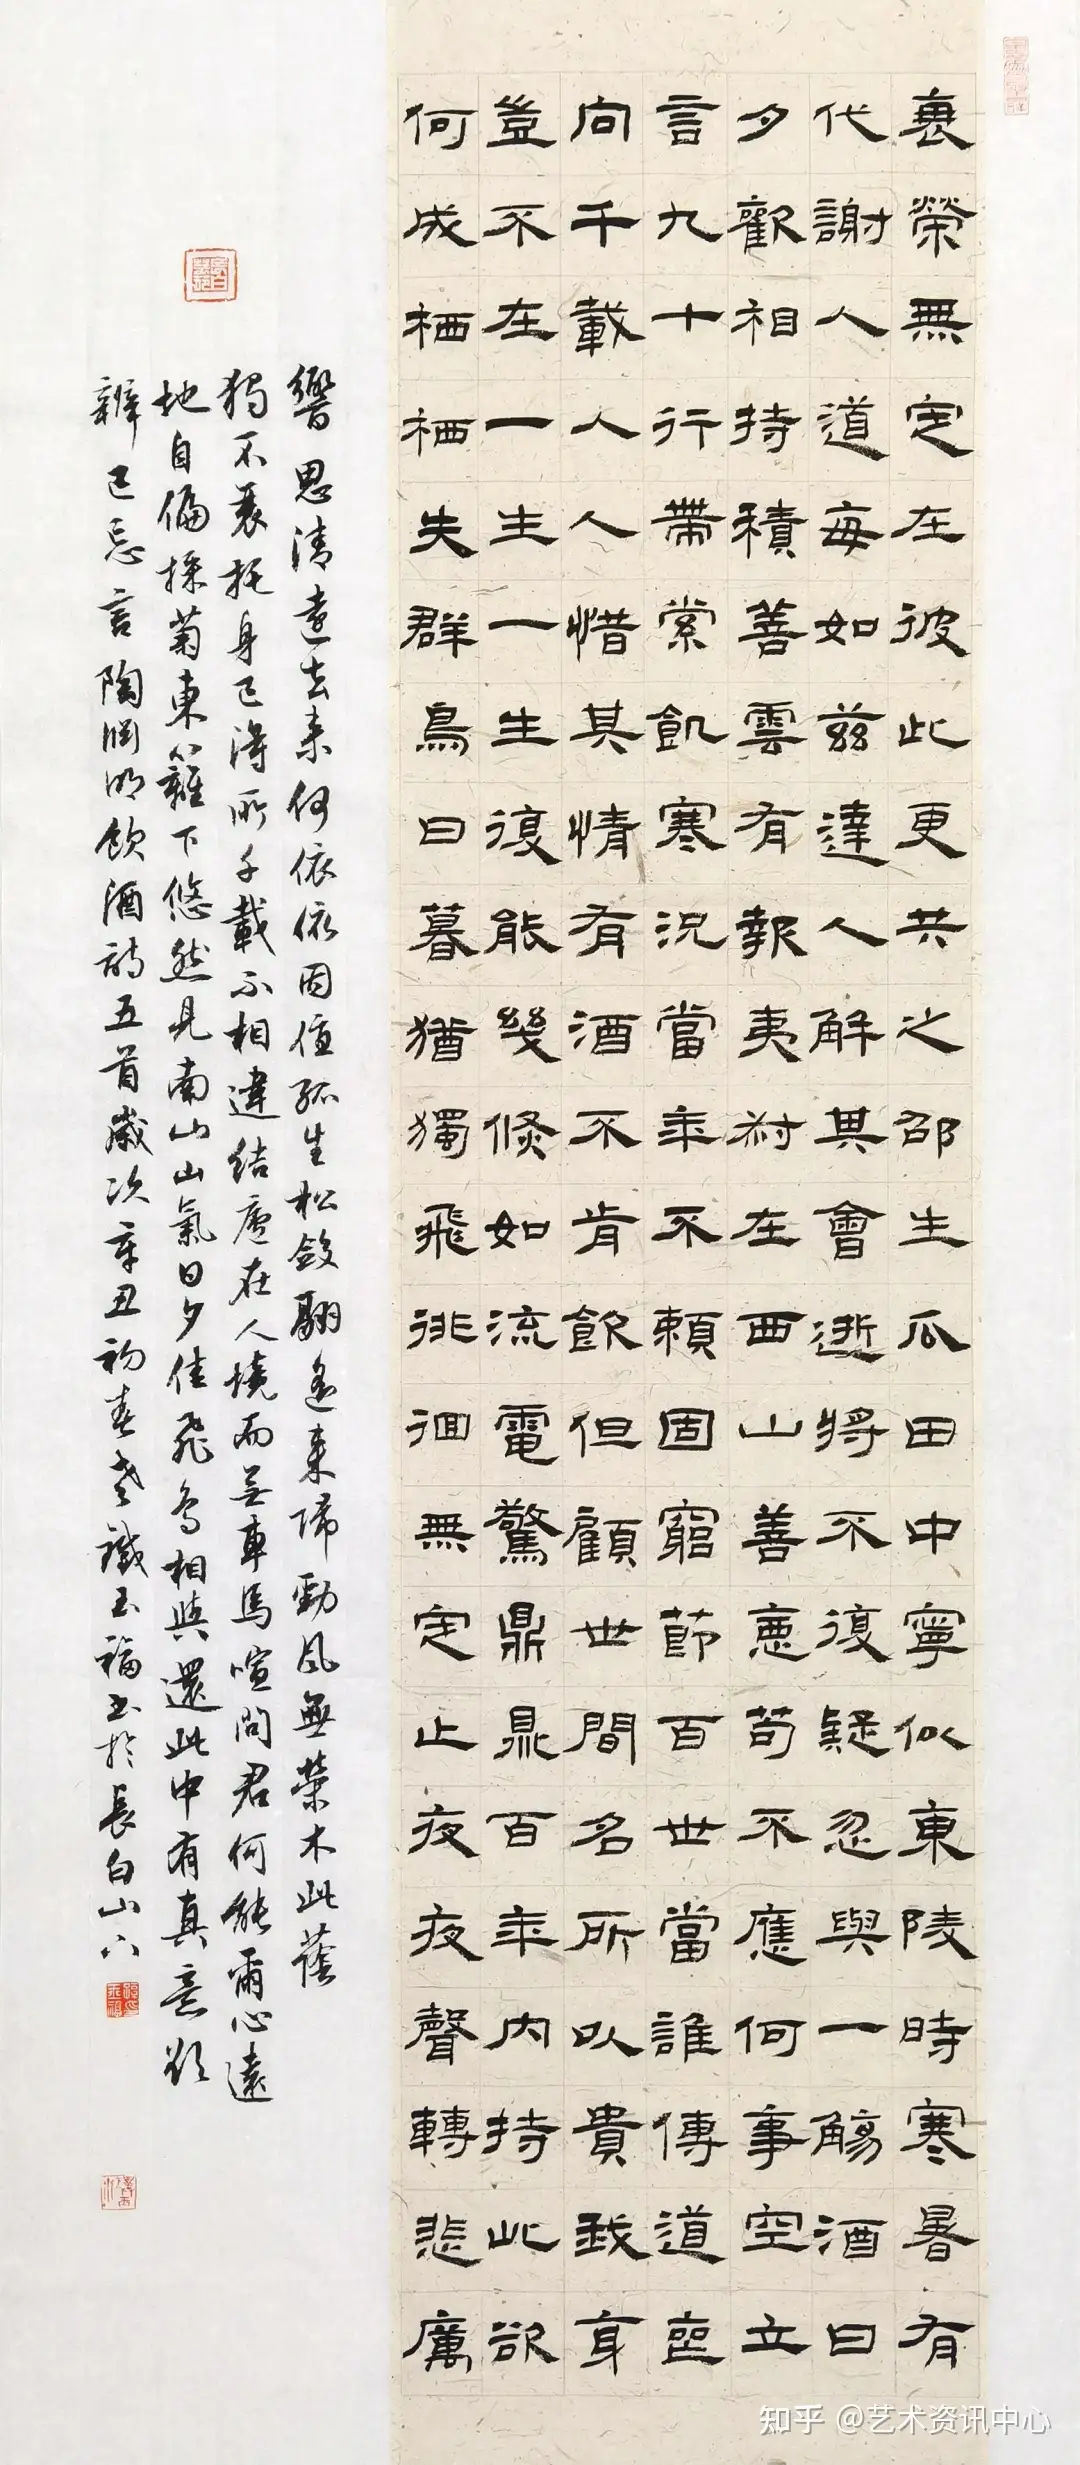 衰榮無定在彼此更共之邵生瓜田中寧似東陵時寒暑有
代謝人道每如茲達人解其會逝將不復疑忽與一觴酒日
夕歡相持積善雲有報夷叔在西山善惡苟不應何事空立
言九十行帶索飢寒況當年不賴固窮節百世當誰傳道喪
向千載人人惜其情有酒不肯飲但顧世間名所以貴我身
豈不在一生一生復能幾倏如流電驚鼎鼎百年內持此欲
何成栖栖失群鳥日暮猶獨飛徘徊無定止夜夜聲轉悲厲
響思清遠去來何依依因值孤生松斂翮遙來歸勁風無榮木此蔭
獨不衰托身已得所千載不相違結廬在人境而無車馬喧問君何能爾心遠
地自偏採菊東籬下悠然見南山山氣日夕佳飛鳥相與還此中有真意欲
辨已忘言陶淵明飲酒詩五首歲次辛丑初春老鐵玉福書於長白山下
知乎 @艺术资讯中心